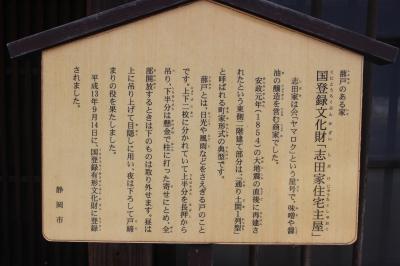 蔀戸のある家
国登録文化財「志田家住宅主屋」
志田家は仌（ヤマロク）という屋号で、味噌や醤
油の醸造を営む商家でした。
安政元年（1854）の大地震の直後に再建さ
れたという東側二階建て部分は、「通り土間1列型」
と呼ばれる町家形式の典型です。
蔀戸とは、日光や風雨などをさえぎる戸のこと
です。上下二枚に分かれていて上半分を長押から
吊り、下半分は懸金で柱に打った寄せにとめ、全
部開放するときは下のものは取り外せます。昼は
上に吊り上げて目隠しに用い、夜は下ろして戸締
まりの役を果たしました。
平成13年9月14日に、国登録有形文化財に登録
されました。
静岡市